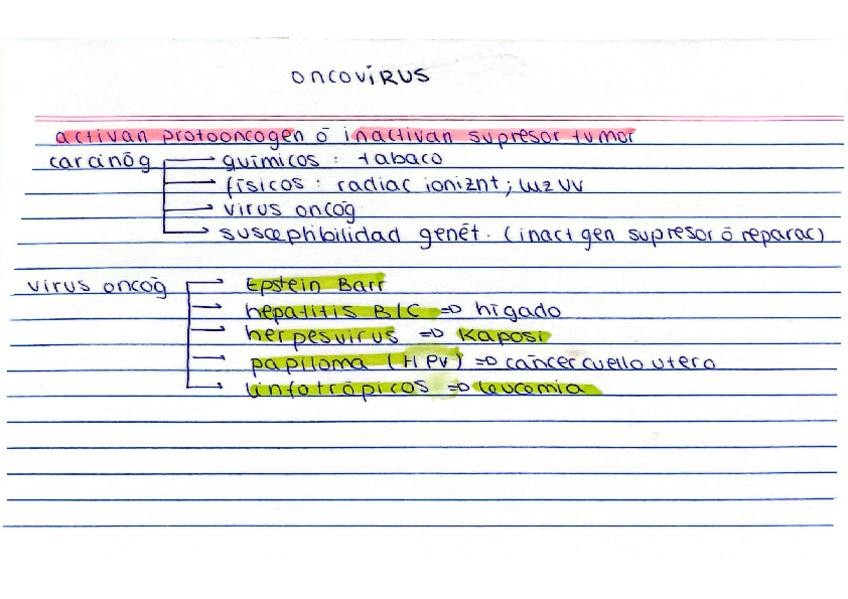 oncovirus
activan protooncogen ó inactivan supresor tumor
carcinóg → químicos : tabaco
→ físicos : radiac ioniznt ; luz uv
→ virus oncóg
→ susceptibilidad genét. (inact gen supresor ó reparac)
virus oncóg → Epstein Barr
→ hepatitis B/C => hígado
→ herpesvirus => Kaposi
→ papiloma (HPV) => cáncer cuello utero
→ linfotrópicos => leucemia